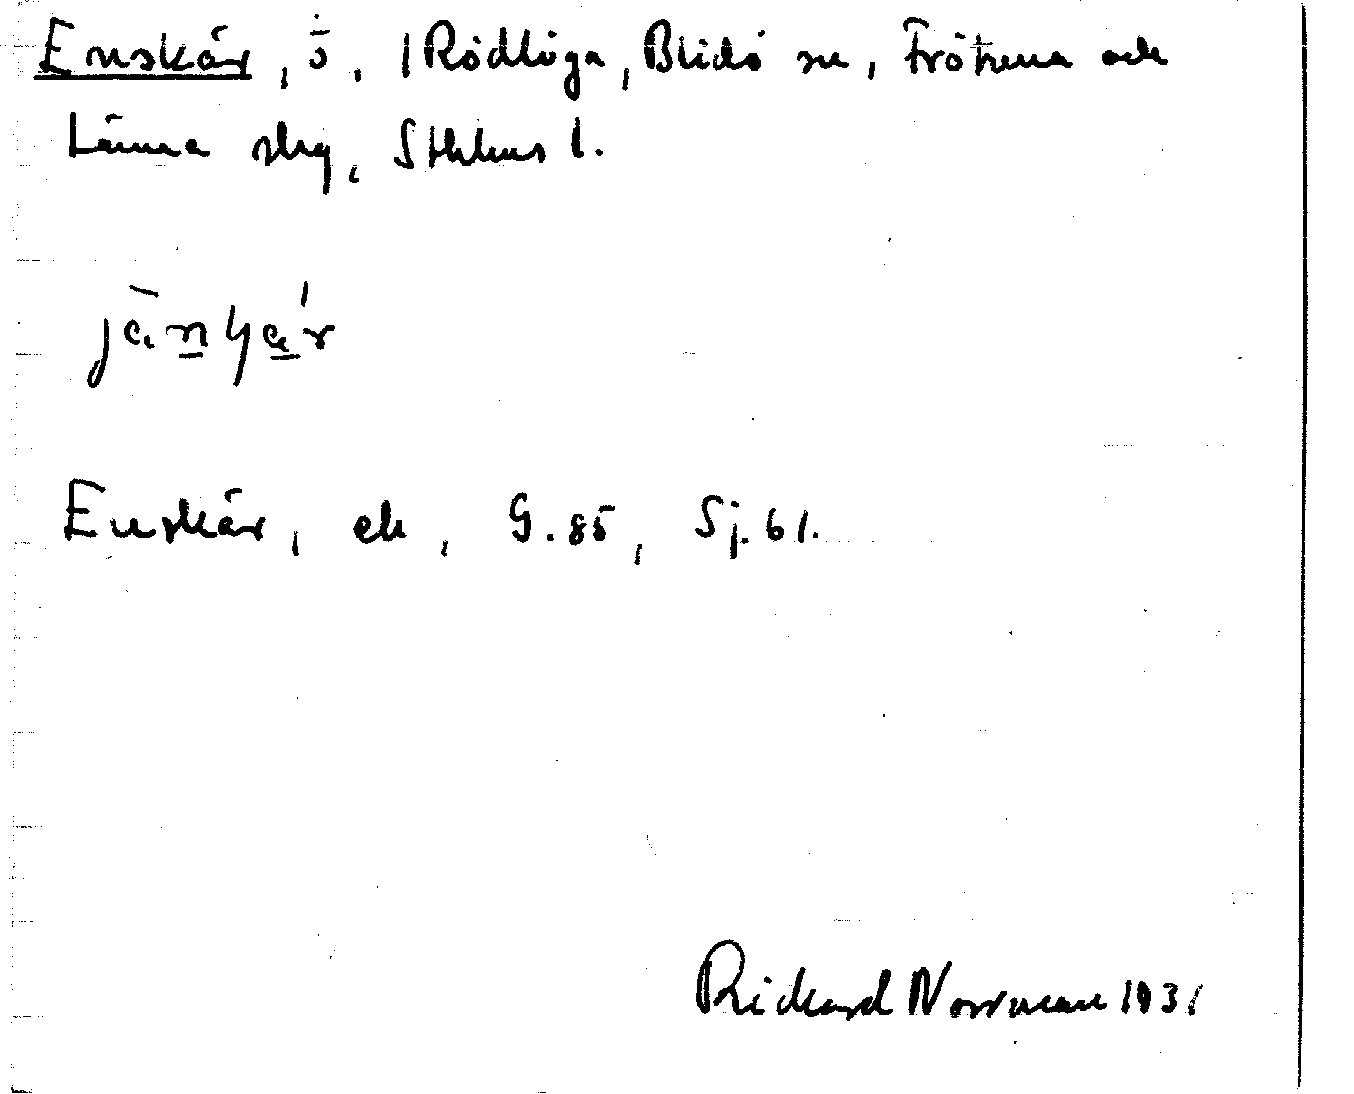 Enskär, ö, 1 Rödlöga, Blidö sn, Frötuna och
Länna skg, Sthlms l.
Enskär, ek, G. 85, Sj. 61.
Rickard Norrman 1931